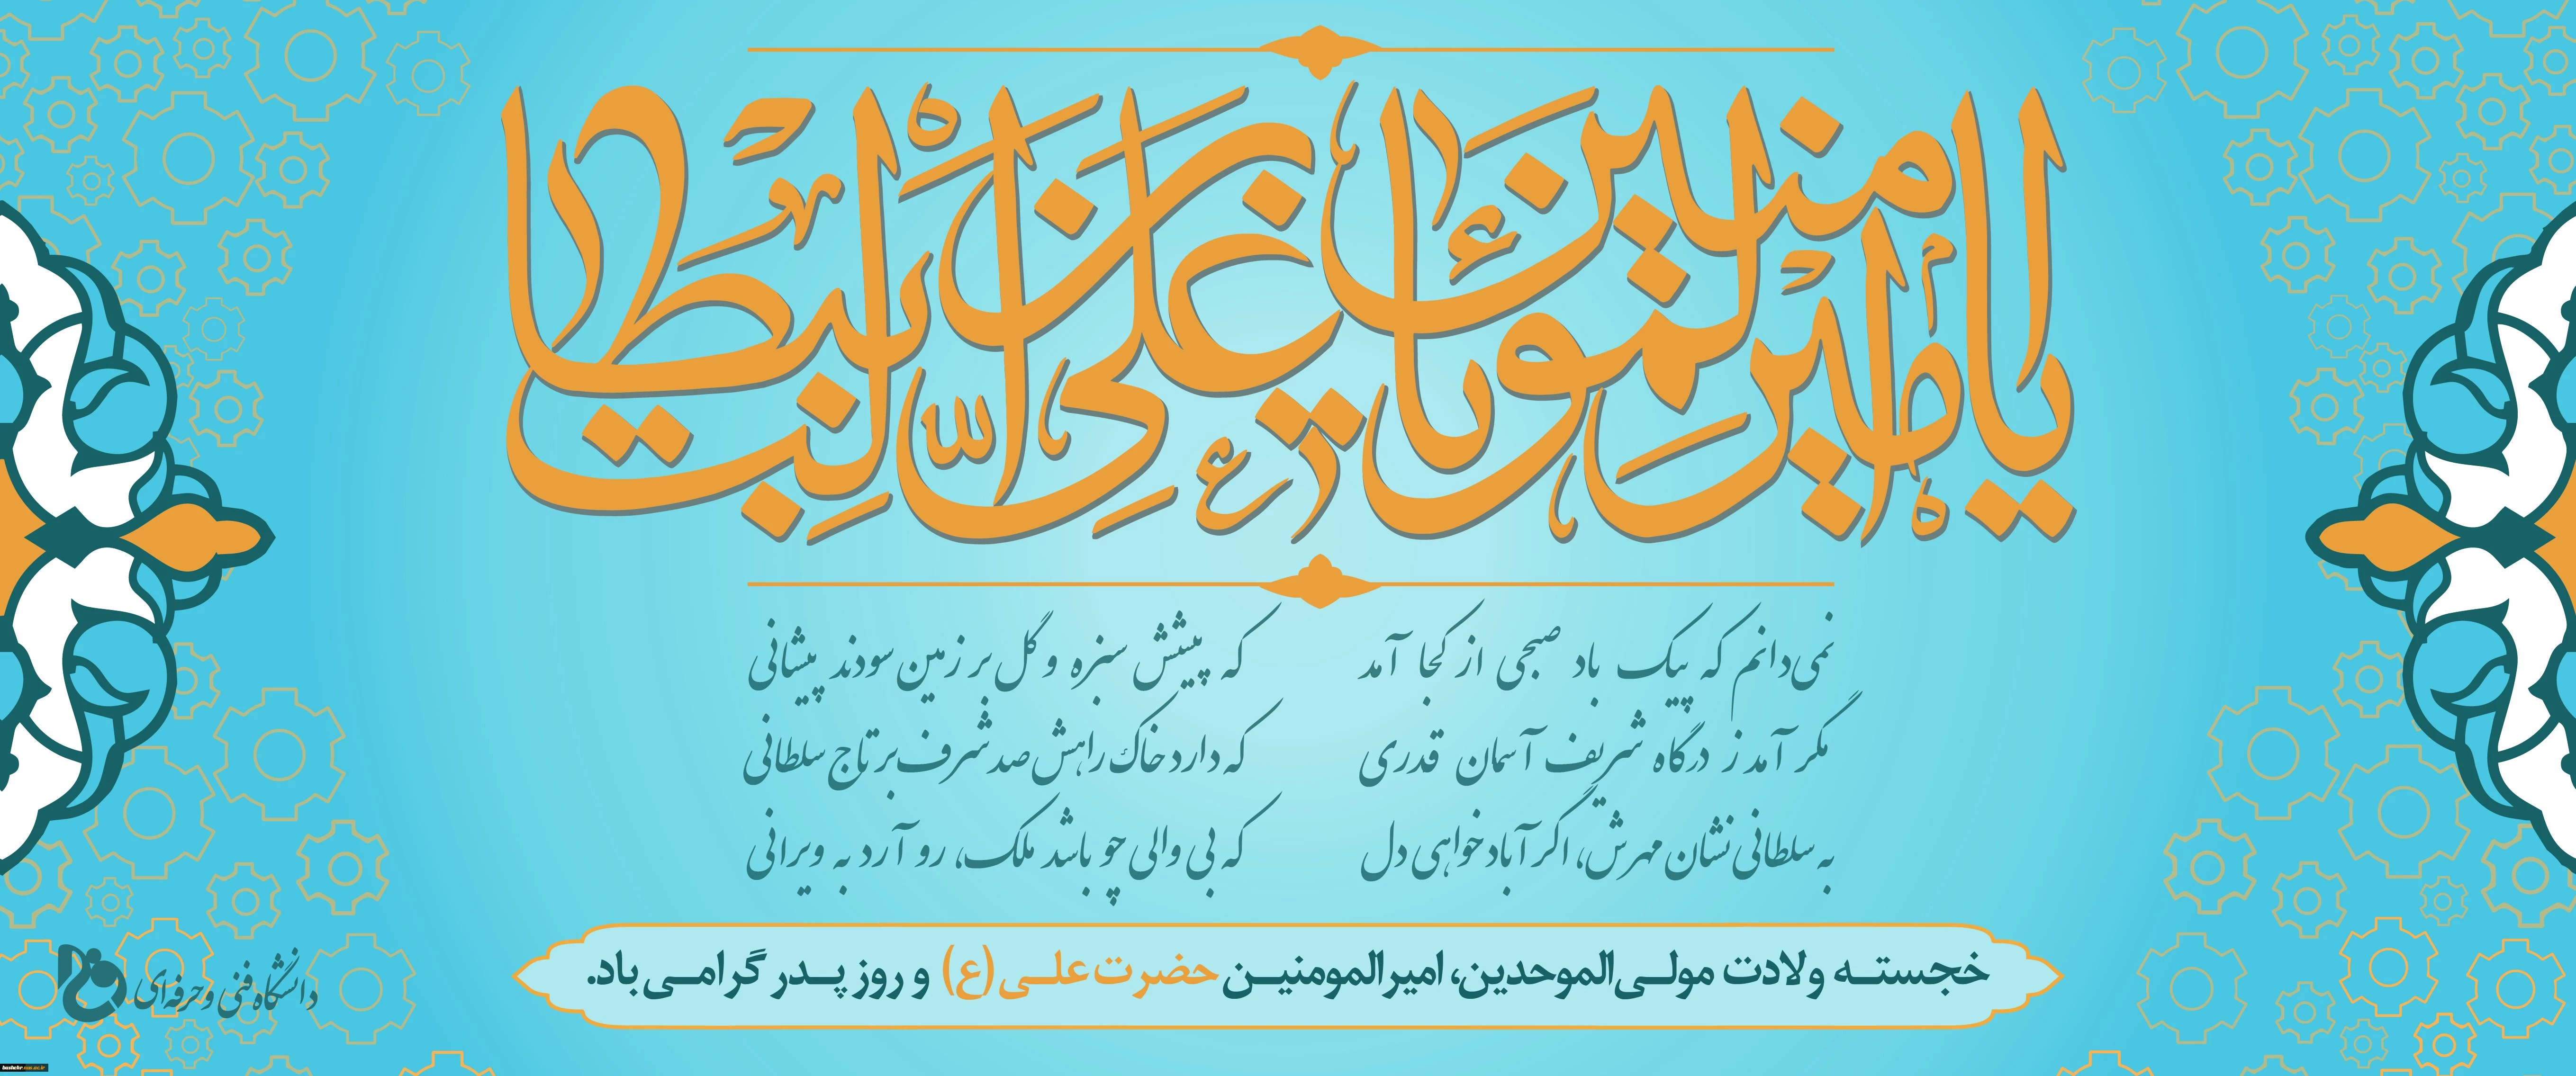 یا امیرالمؤمنین یا علی بن ابیطالب
نمی‌دانم که پیک باد صبحی از کجا آمد که پیشش سبزه و گل بر زمین سودند پیشانی
مگر آمد ز درگاه شریف آسمان قدری که دارد خاک راهش صد شرف بر تاج سلطانی
به سلطانی نشان مهرش، اگر آباد خواهی دل که بی والی چو باشد ملک، رو آرد به ویرانی
خجسته ولادت مولی‌الموحدین، امیرالمومنین حضرت علی (ع) و روز پدر گرامی باد.
دانشگاه فنی و حرفه‌ای